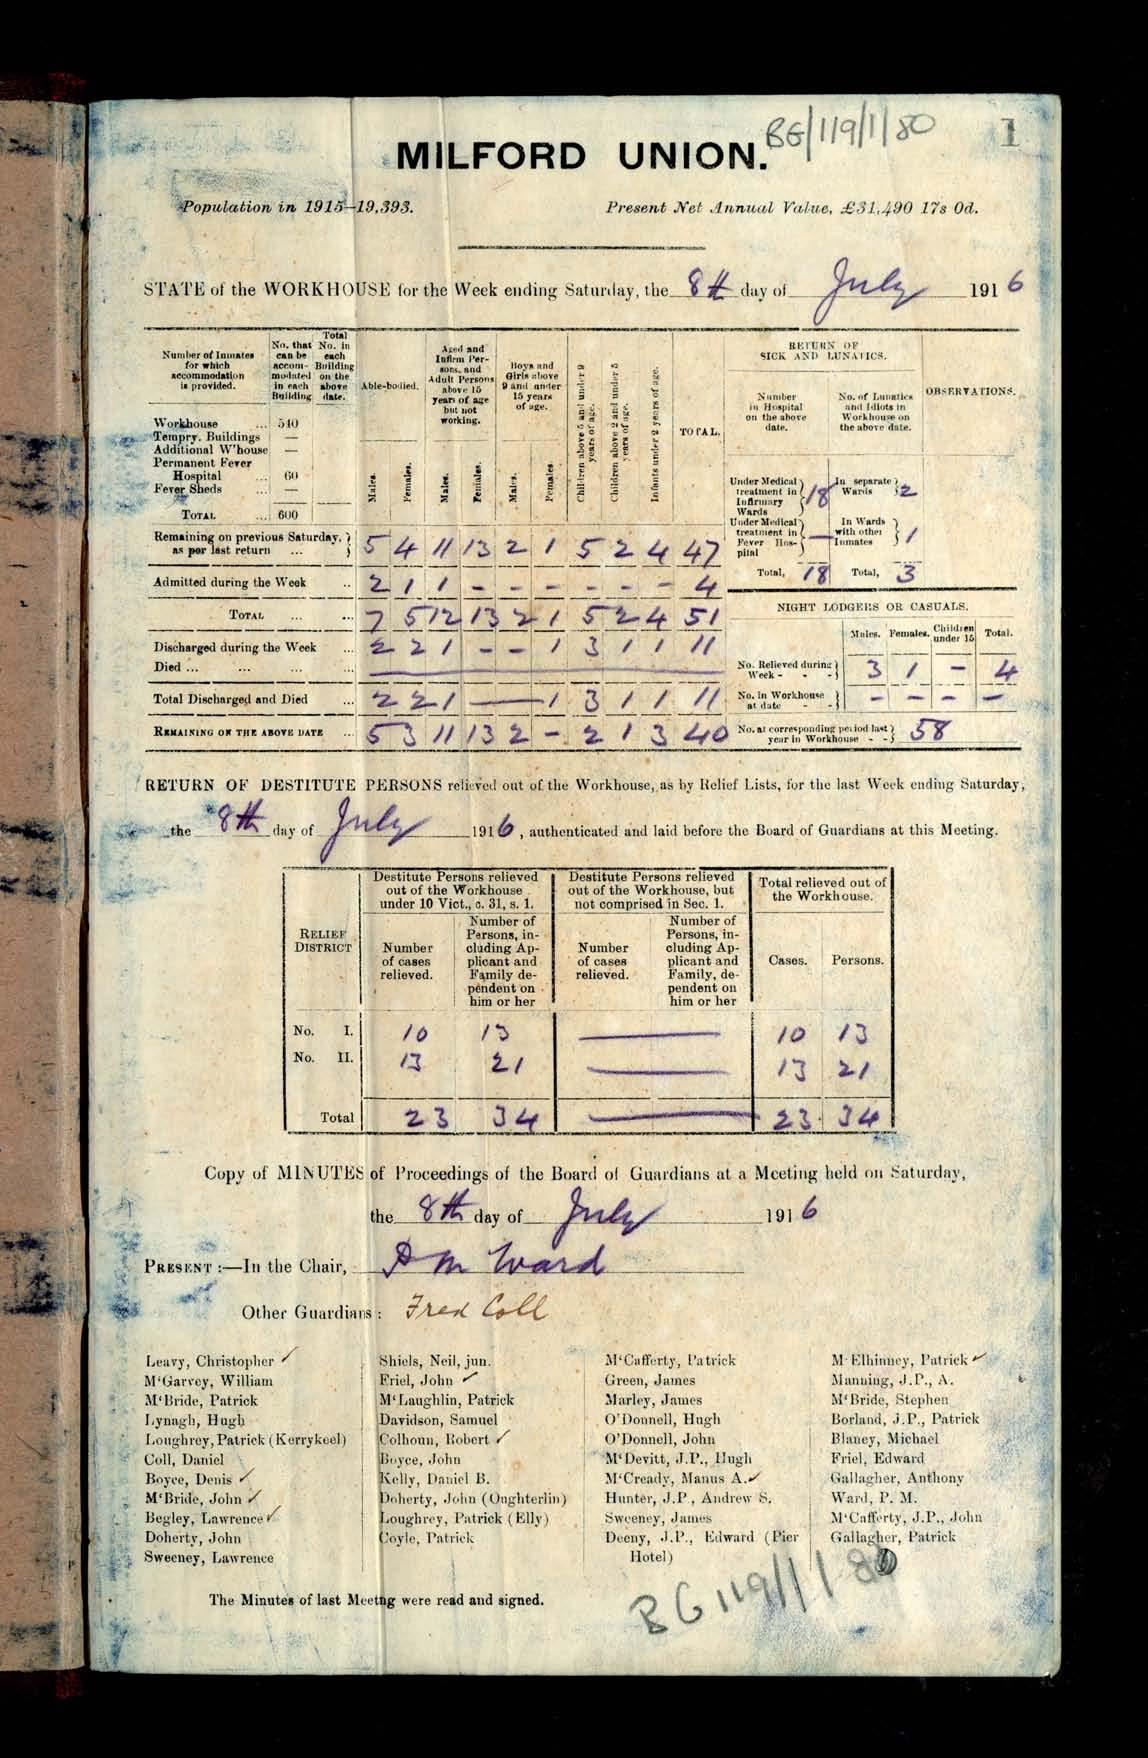 BG/119/1/80
1
MILFORD UNION.
Population in 1915–19,393.
Present Net Annual Value, £31,490 17s 0d.
STATE of the WORKHOUSE for the Week ending Saturday, the 8th day of July 1916
Number of Inmates for which accommodation is provided.
No. that can be accom-modated in each Building
Total No. in each Building on the above date.
Able-bodied.
Aged and Infirm Per-sons, and Adult Persons above 15 years of age but not working.
Boys and Girls above 9 and under 15 years of age.
Children above 5 and under 9 years of age.
Children above 2 and under 5 years of age.
Infants under 2 years of age.
TOTAL.
RETURN OF SICK AND LUNATICS.
Number in Hospital on the above date.
No. of Lunatics and Idiots in Workhouse on the above date.
OBSERVATIONS.
Males. Females. Males. Females. Males. Females.
Workhouse ... 540
Tempry. Buildings —
Additional W'house —
Permanent Fever
Hospital ... 60
Fever Sheds ... —
TOTAL ... 600
Under Medical treatment in Infirmary Wards 18
In separate Wards 2
Under Medical treatment in Fever Hos-pital —
In Wards with other Inmates 1
Total, 18 Total, 3
Remaining on previous Saturday, as per last return ... 5 4 11 13 2 1 5 2 4 47
Admitted during the Week .. 2 1 1 - - - - - - 4
TOTAL ... ... 7 5 12 13 2 1 5 2 4 51
Discharged during the Week ... 2 2 1 - - 1 3 1 1 11
Died ... ... ... ...
Total Discharged and Died ... 2 2 1 — 1 3 1 1 11
REMAINING ON THE ABOVE DATE ... 5 3 11 13 2 - 2 1 3 40
NIGHT LODGERS OR CASUALS.
Males. Females. Children under 15 Total.
No. Relieved during Week - - - 3 1 - 4
No. in Workhouse at date - - - - - -
No. at corresponding period last year in Workhouse - - 58
RETURN OF DESTITUTE PERSONS relieved out of the Workhouse, as by Relief Lists, for the last Week ending Saturday,
the 8th day of July 1916, authenticated and laid before the Board of Guardians at this Meeting.
RELIEF DISTRICT
Destitute Persons relieved out of the Workhouse under 10 Vict., c. 31, s. 1.
Destitute Persons relieved out of the Workhouse, but not comprised in Sec. 1.
Total relieved out of the Workhouse.
Number of cases relieved.
Number of Persons, in-cluding Ap-plicant and Family de-pendent on him or her
Number of cases relieved.
Number of Persons, in-cluding Ap-plicant and Family, de-pendent on him or her
Cases. Persons.
No. I. 10 13 — 10 13
No. II. 13 21 — 13 21
Total 23 34 — 23 34
Copy of MINUTES of Proceedings of the Board of Guardians at a Meeting held on Saturday,
the 8th day of July 1916
PRESENT :—In the Chair, P M Ward
Other Guardians : Fred Coll
Leavy, Christopher ✓
M‘Garvey, William
M‘Bride, Patrick
Lynagh, Hugh
Loughrey, Patrick (Kerrykeel)
Coll, Daniel
Boyce, Denis ✓
M‘Bride, John ✓
Begley, Lawrence ✓
Doherty, John
Sweeney, Lawrence
Shiels, Neil, jun.
Friel, John ✓
M‘Laughlin, Patrick
Davidson, Samuel
Colhoun, Robert ✓
Boyce, John
Kelly, Daniel B.
Doherty, John (Oughterlin)
Loughrey, Patrick (Elly)
Coyle, Patrick
M‘Cafferty, Patrick
Green, James
Marley, James
O'Donnell, Hugh
O'Donnell, John
M‘Devitt, J.P., Hugh
M‘Cready, Manus A. ✓
Hunter, J.P., Andrew S.
Sweeney, James
Deeny, J.P., Edward (Pier Hotel)
M‘Elhinney, Patrick ✓
Manning, J.P., A.
M‘Bride, Stephen
Borland, J.P., Patrick
Blaney, Michael
Friel, Edward
Gallagher, Anthony
Ward, P. M.
M‘Cafferty, J.P., John
Gallagher, Patrick
The Minutes of last Meetng were read and signed.
BG 119/1/80